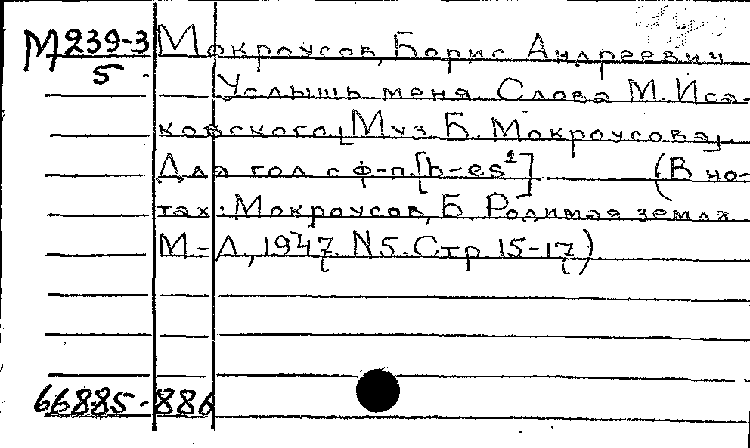 М 239-3
5
Мокроусов, Борис Андреевич
Услышь меня. Слова М. Иса-
ковского, [Муз. Б. Мокроусова].
Для гол. с ф-п. [h-es¹] (В но-
тах: Мокроусов, Б. Родимая земля
М-Л, 1947. N5. Стр. 15-17)
66885-886